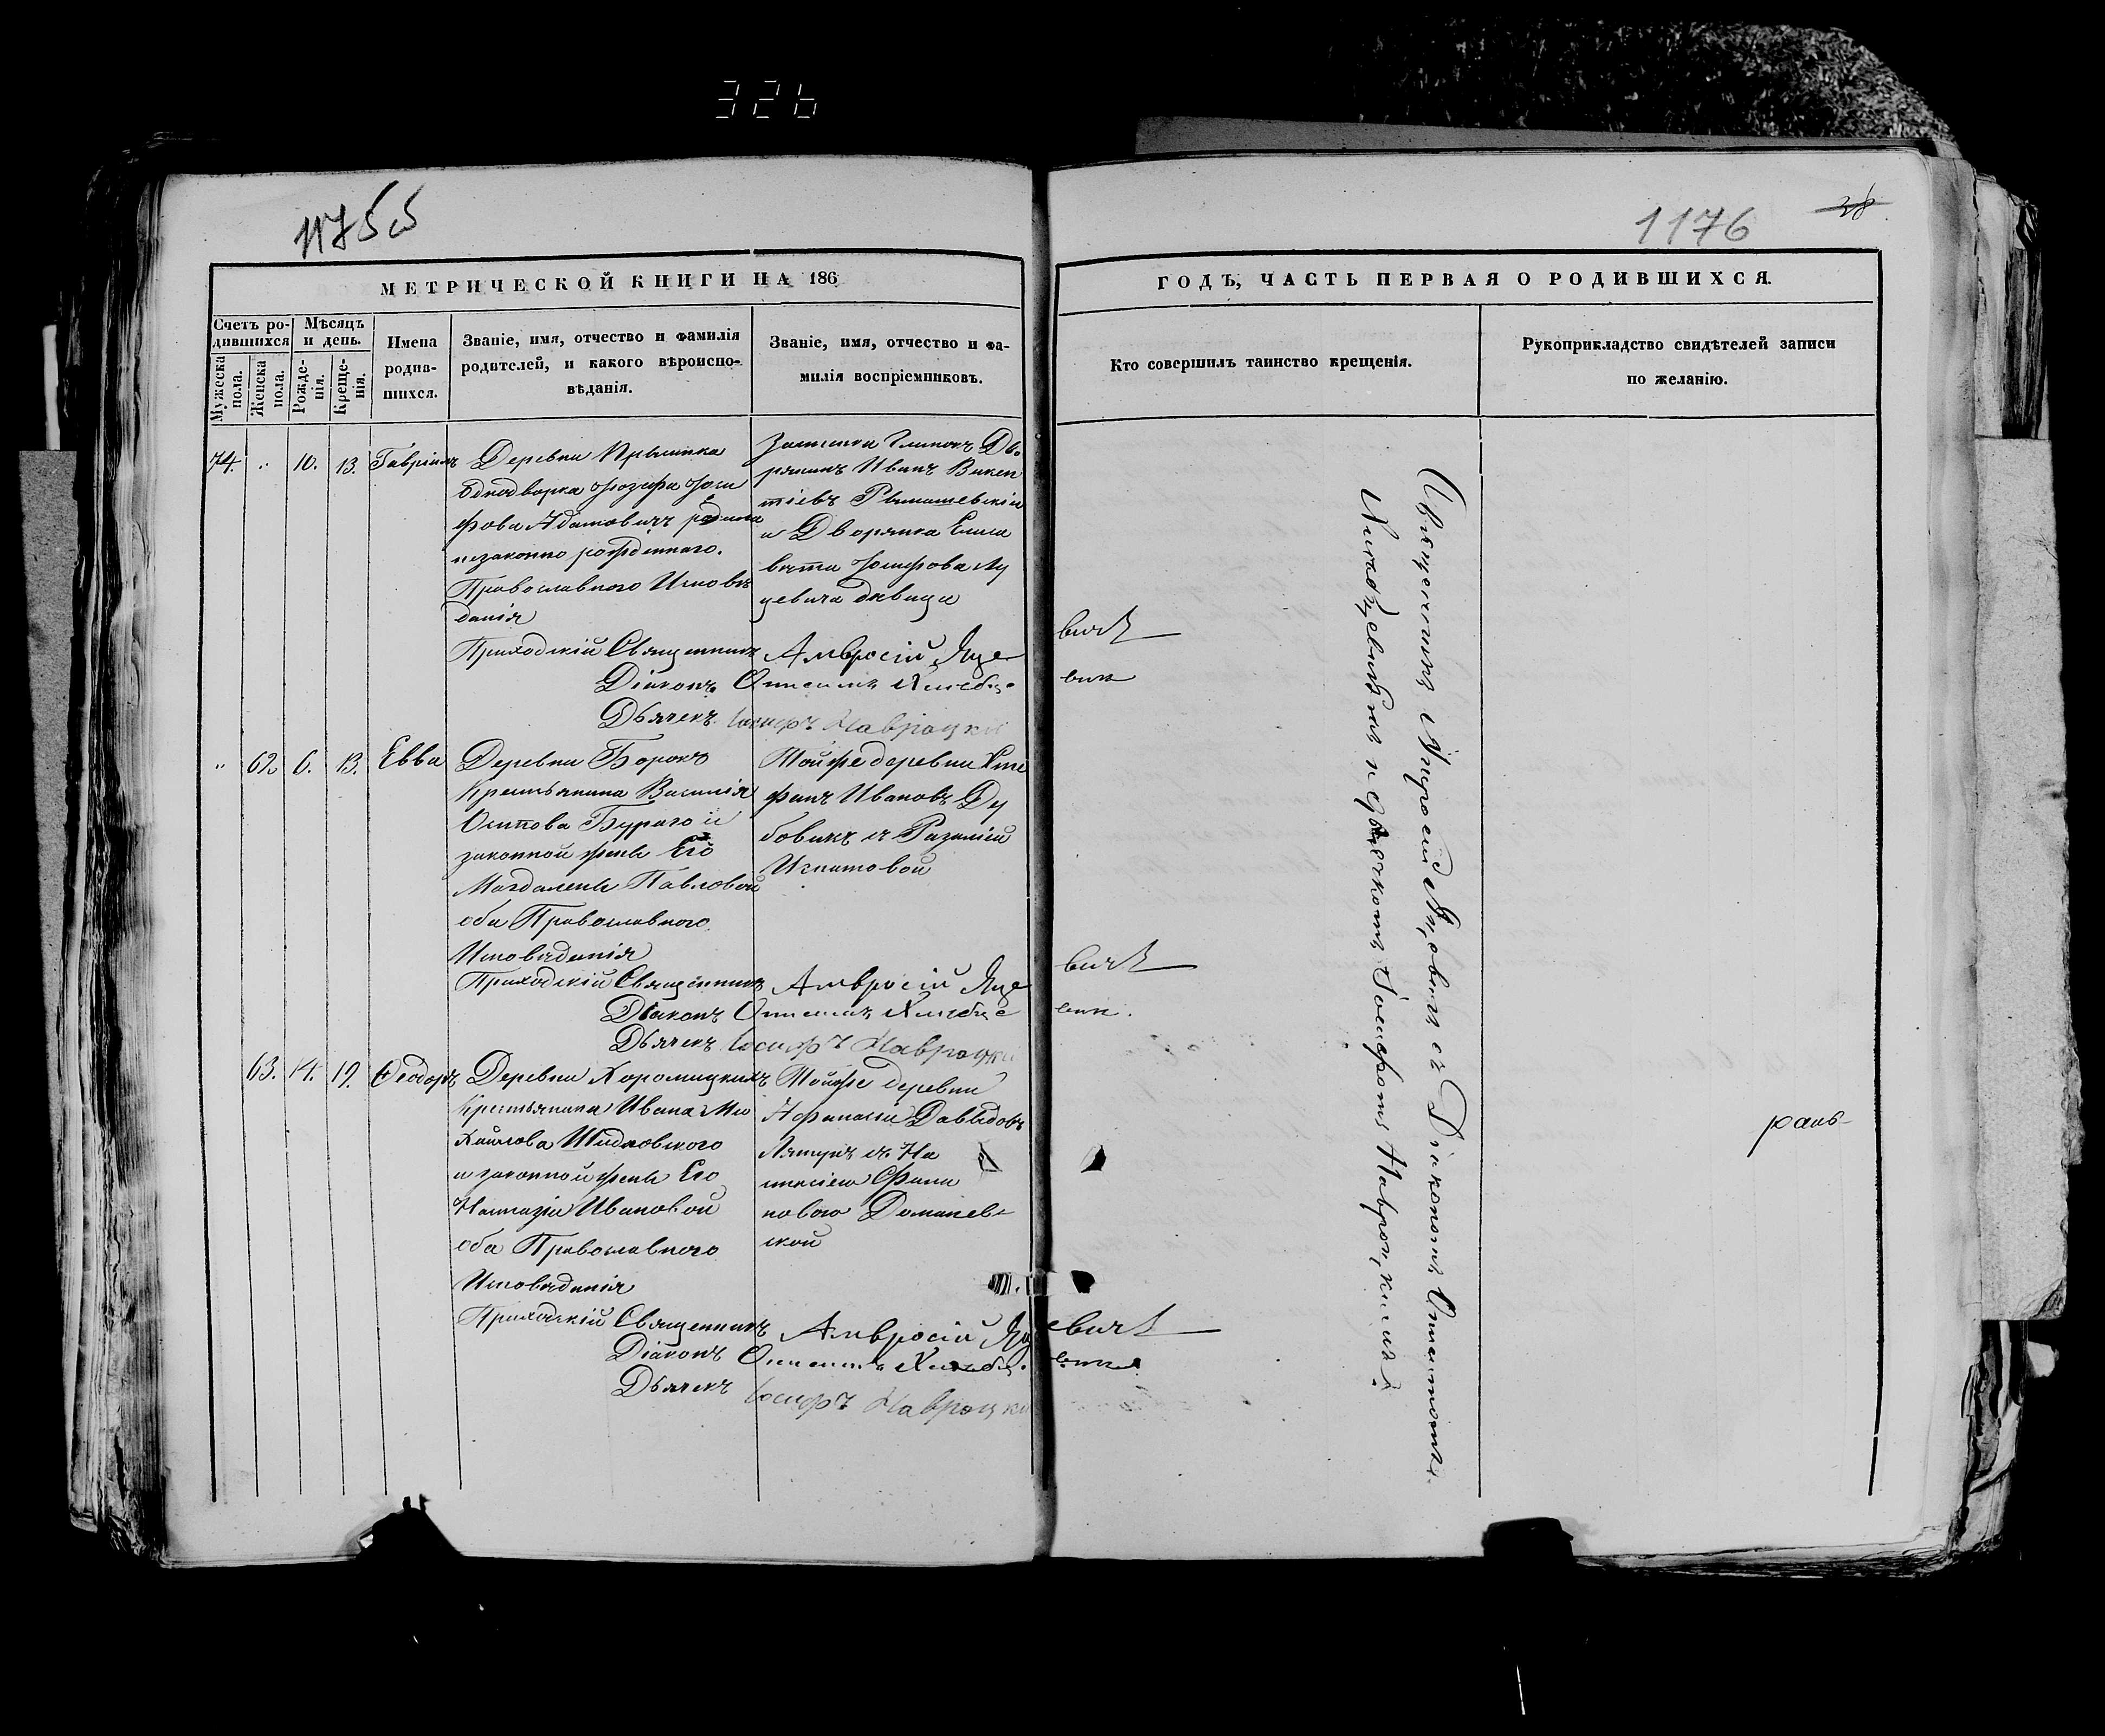 326
1175
1176
38
МЕТРИЧЕСКОЙ КНИГИ НА 186
ГОДЪ, ЧАСТЬ ПЕРВАЯ О РОДИВШИХСЯ.
Счетъ ро-
дившихся
Мужеска
пола.
Женска
пола.
Мѣсяцъ
и день.
Рожде-
нія.
Креще-
нія.
Имена
родив-
шихся.
Званіе, имя, отчество и фамилія
родителей, и какого вѣроиспо-
вѣданія.
Званіе, имя, отчество и фа-
милія воспріемниковъ.
Кто совершилъ таинство крещенія.
Рукоприкладство свидѣтелей записи
по желанію.
74. " 10. 13. Гавріилъ
Деревни
Однодворка Іозефа Іоси
фова Адамовичъ
незаконно рожденнаго.
Православнаго Исповѣ
данія
Дво
рянинъ Иванъ Викен
тіевъ
и Дворянка Елиса
вета Іосифова Яц
цевича дѣвица
Приходскій Священникъ Амвросій Яцевичъ
Діаконъ
Дьячекъ Іосифъ Навроцкій
" 62 6. 13. Евва
Деревни Борокъ
Крестьянина Василія
Осипова Бураго и
законной жены Его
Магдалены Павловой
оба Православнаго
Исповѣданія
Тойже деревни Сте
фанъ Ивановъ Ду
бовикъ и Розалія
Игнатовой
Приходскій Священникъ Амвросій Яцевичъ
Діаконъ
Дьячекъ Іосифъ Навроцкій
63. 14. 19. Ѳеодоръ
Деревни Хоромицкихъ
Крестьянина Ивана Ми
хайлова Шидловскаго
и законной жены Его
Настазіи Ивановой
оба Православнаго
Исповѣданія
Тойже деревни
Афанасій Давыдовъ
Ляшукъ съ На
стасіею
Доманев
ской
Приходскій Священникъ Амвросій Яцевичъ
Діаконъ
Дьячекъ Іосифъ Навроцкій
Священникъ Амвросій Яцевичъ съ Діакономъ
и Дьячкомъ Іосифомъ Навроцкимъ